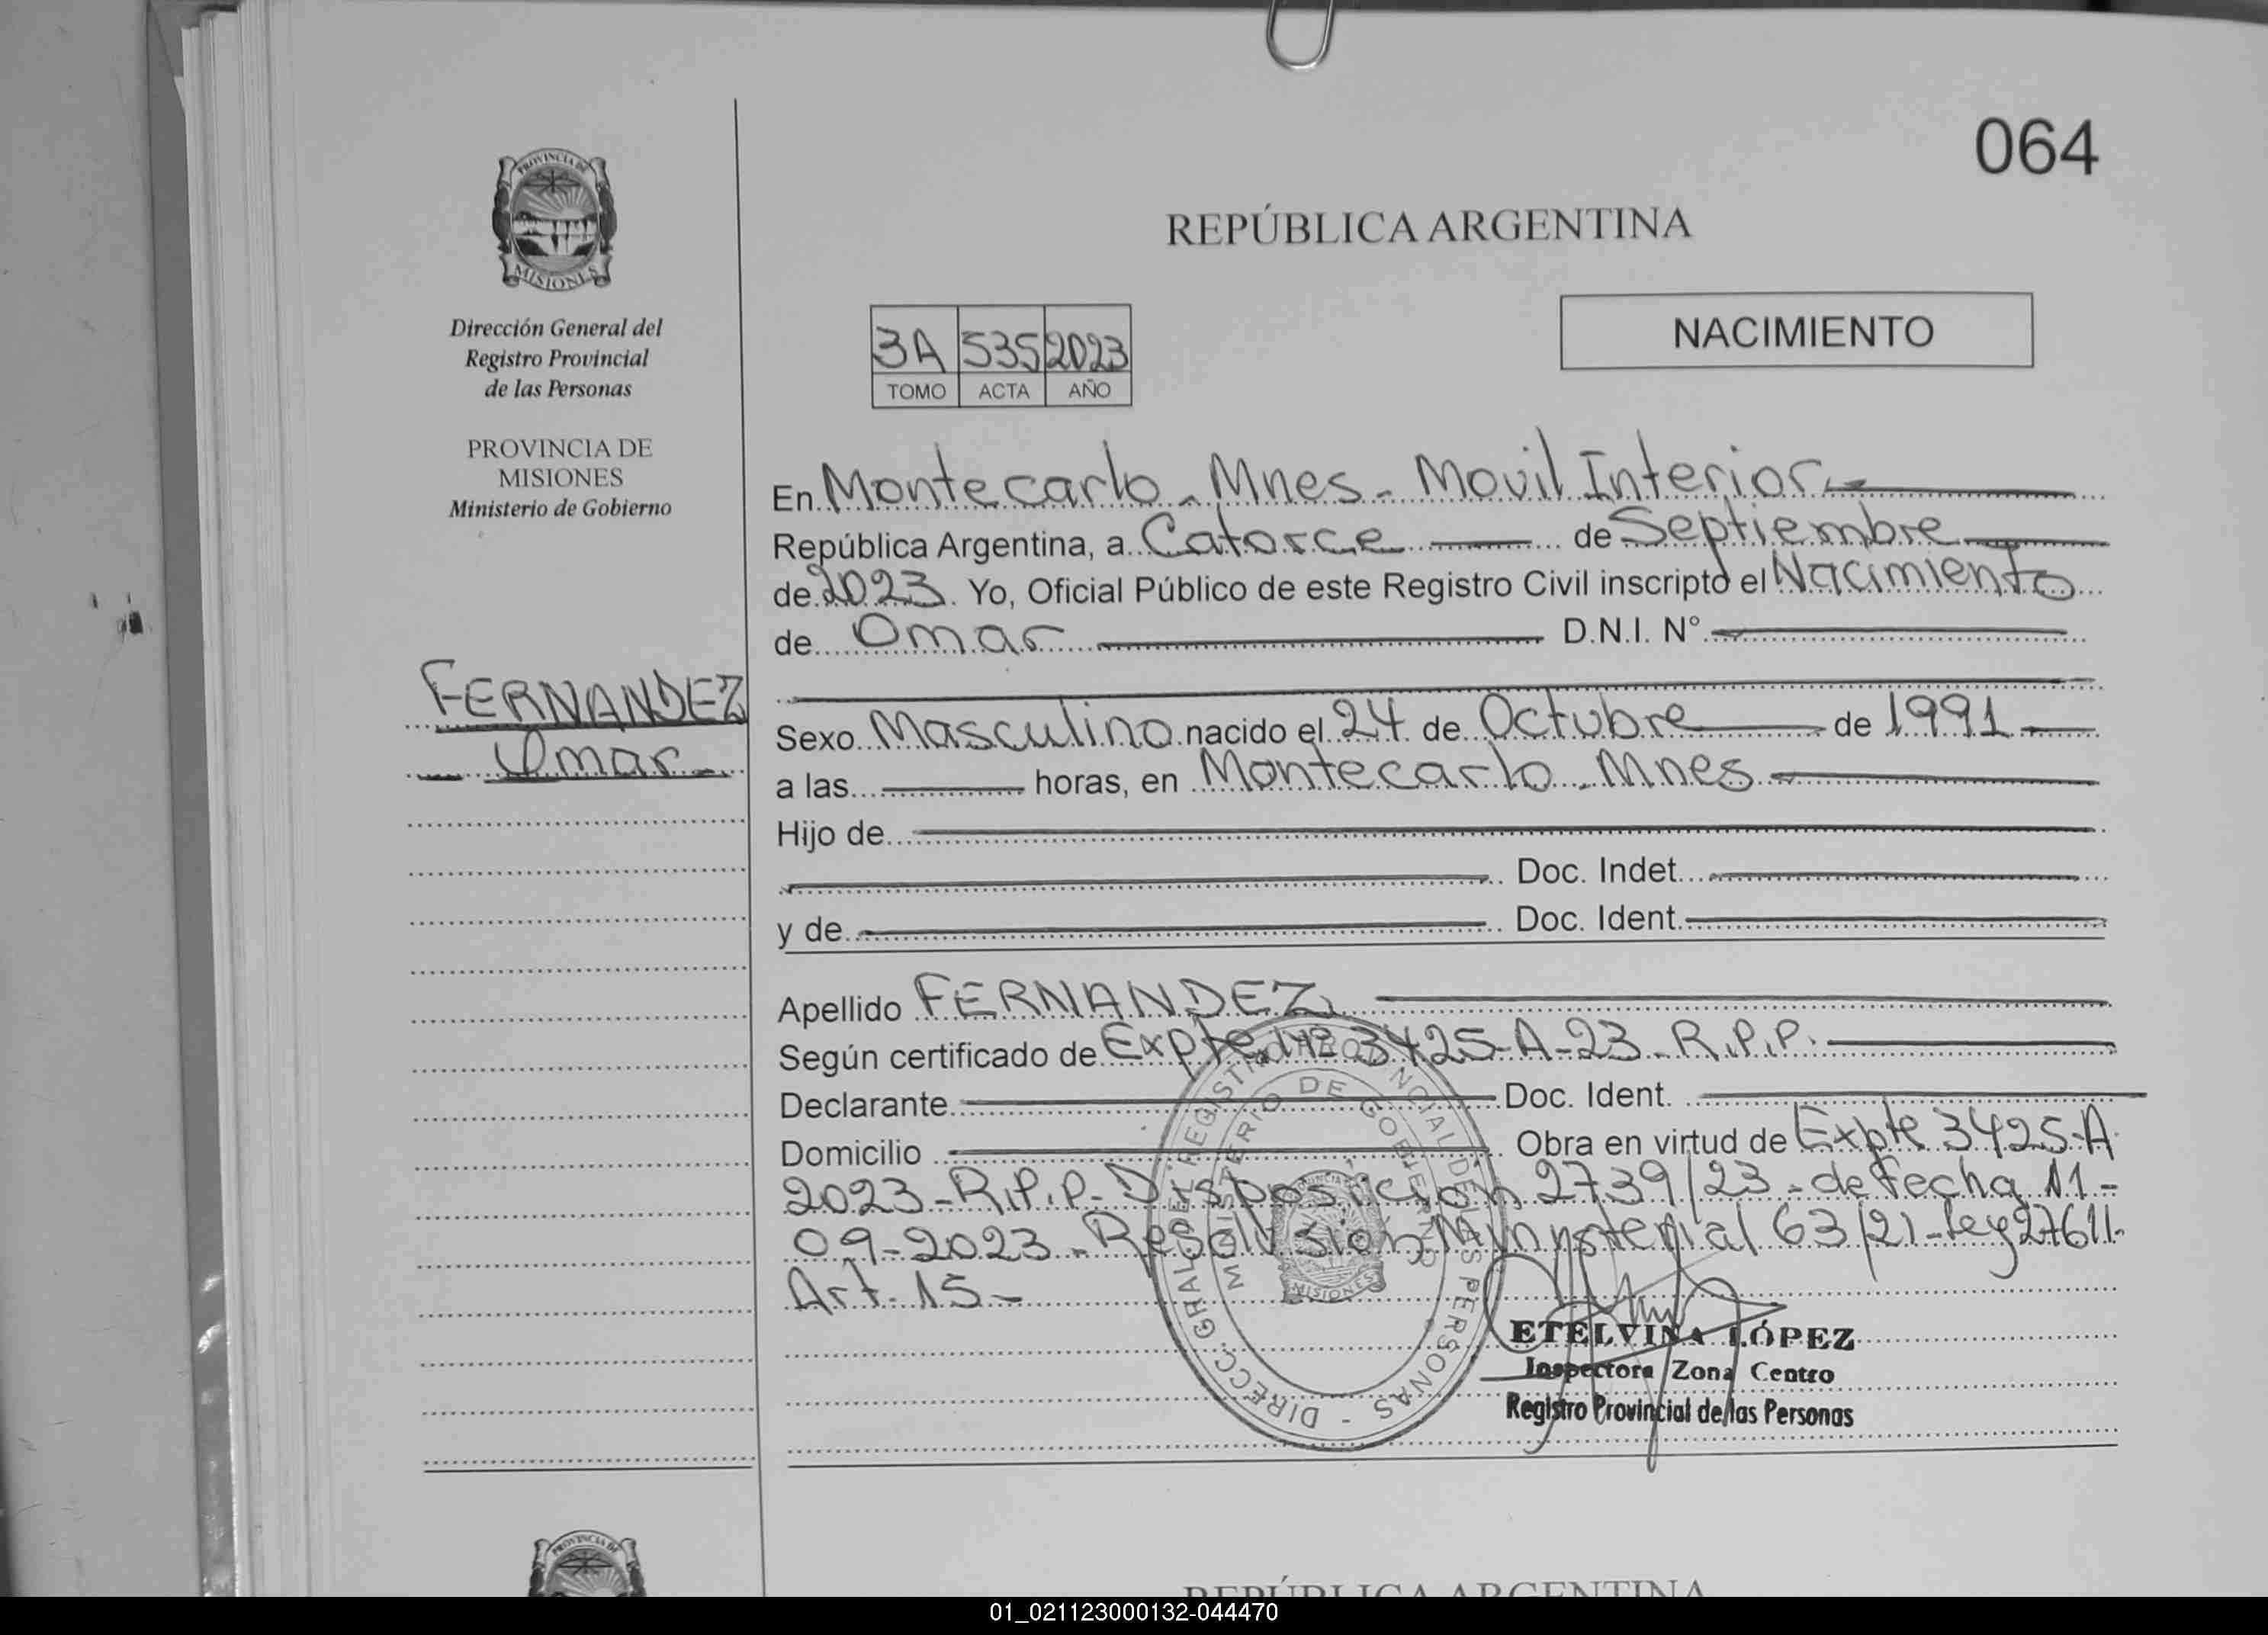 064
PROVINCIA DE
MISIONES
Dirección General del
Registro Provincial
de las Personas
PROVINCIA DE
MISIONES
Ministerio de Gobierno
FERNANDEZ
Omar
REPÚBLICA ARGENTINA
3A 535 2023
TOMO ACTA AÑO
NACIMIENTO
En Montecarlo - Mnes - Movil Interior
República Argentina, a Catorce de Septiembre
de 2023. Yo, Oficial Público de este Registro Civil inscripto el Nacimiento
de Omar D.N.I. N°
Sexo Masculino nacido el 24 de Octubre de 1991
a las horas, en Montecarlo - Mnes
Hijo de
Doc. Indet.
y de Doc. Ident.
Apellido FERNANDEZ
Según certificado de Expte Nº 3425-A-23-R.P.P.
Declarante Doc. Ident.
Domicilio Obra en virtud de Expte 3425-A
2023-R.P.P- Disposicion 2739/23-de fecha 11-
09-2023- Resolusion Ministerial 63/21-Ley 27611-
Art. 15-
DIRECC. GRAL. DEL REGISTRO PROVINCIAL DE LAS PERSONAS -
MINISTERIO DE GOBIERNO
MISIONES
ETELVINA LÓPEZ
Inspectora Zona Centro
Registro Provincial de las Personas
PROVINCIA DE
REPÚBLICA ARGENTINA
01_021123000132-044470